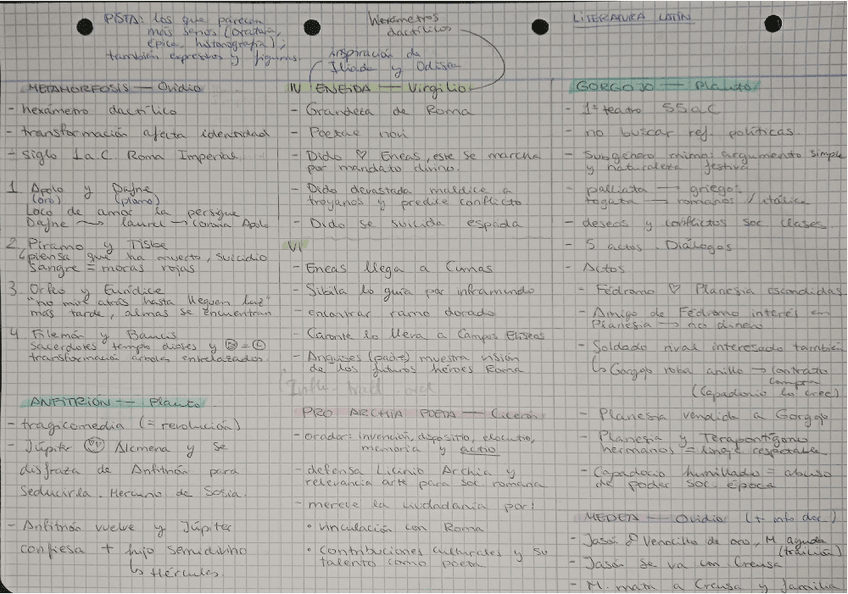 PISTA: los que parecen
más serios (oratoria,
épica, historiografía),
también expresivos y figuras.
Hexámetros
dactílicos
inspiración de
Iliada y Odisea
LITERATURA LATÍN
METAMORFOSIS — Ovidio
- hexámetro dactílico
- transformación afecta identidad
- siglo 1 a C Roma Imperial
1. Apolo y Dafne
(oro) (plomo)
Loco de amor la persigue
Dafne → laurel → corona Apolo
2. Piramo y Tisbe
piensa que ha muerto, suicidio
sangre = moras rojas
3. Orfeo y Eurídice
"no mire atrás hasta lleguen luz"
más tarde, almas se encuentran
4. Filemón y Baucis
sacerdotes templo dioses y
transformación árboles entrelazados
ANFITRIÓN — Plauto
- tragicomedia (= revolución)
- Júpiter ♡ Alcmena y se
disfraza de Anfitrión para
seducirla. Mercurio de Sosia.
- Anfitrión vuelve y Júpiter
confiesa + hijo semidivino
↳ Hércules
IV ENEIDA — Virgilio
- Grandeza de Roma
- Poetae novi
- Dido ♡ Eneas, este se marcha
por mandato divino.
- Dido devastada maldice a
troyanos y predice conflicto
- Dido se suicida espada
VI
- Eneas llega a Cumas
- Sibila lo guía por inframundo
- encontrar ramo dorado
- Caronte lo lleva a Campos Elíseos
- Anquises (padre) muestra visión
de los futuros héroes Roma
PRO ARCHIA POETA — Cicerón
- orador: invención, dispositio, elocutio,
memoria y actio
- defensa Licinio Archia y
relevancia arte para soc romana
- merece la ciudadanía por:
• vinculación con Roma
• contribuciones culturales y su
talento como poeta
GORGOJO — Plauto
- 1º teatro SS a C
- no buscar ref. políticas
- Subgénero mimo: argumento simple
y naturaleza festiva
- palliata → griegos
togata → romanos / itálica
- deseos y conflictos soc clases
- 5 actos. Diálogos
- Actos
- Fédromo ♡ Planesia escondidas
- Amigo de Fédromo interés en
Planesia → no dinero
- Soldado rival interesado también
↳ Gorgojo roba anillo → contrato
compra
(Capadocio lo cree)
- Planesia vendida a Gorgojo
- Planesia y Terapontígono
hermanos = linaje respetable
- Capadocio humillado = abuso
de poder soc. época
MEDEA — Ovidio (+ info doc.)
- Jasón Vellocino de oro, M. ayuda
(traición)
- Jasón se va con Creusa
- M. mata a Creusa y familia